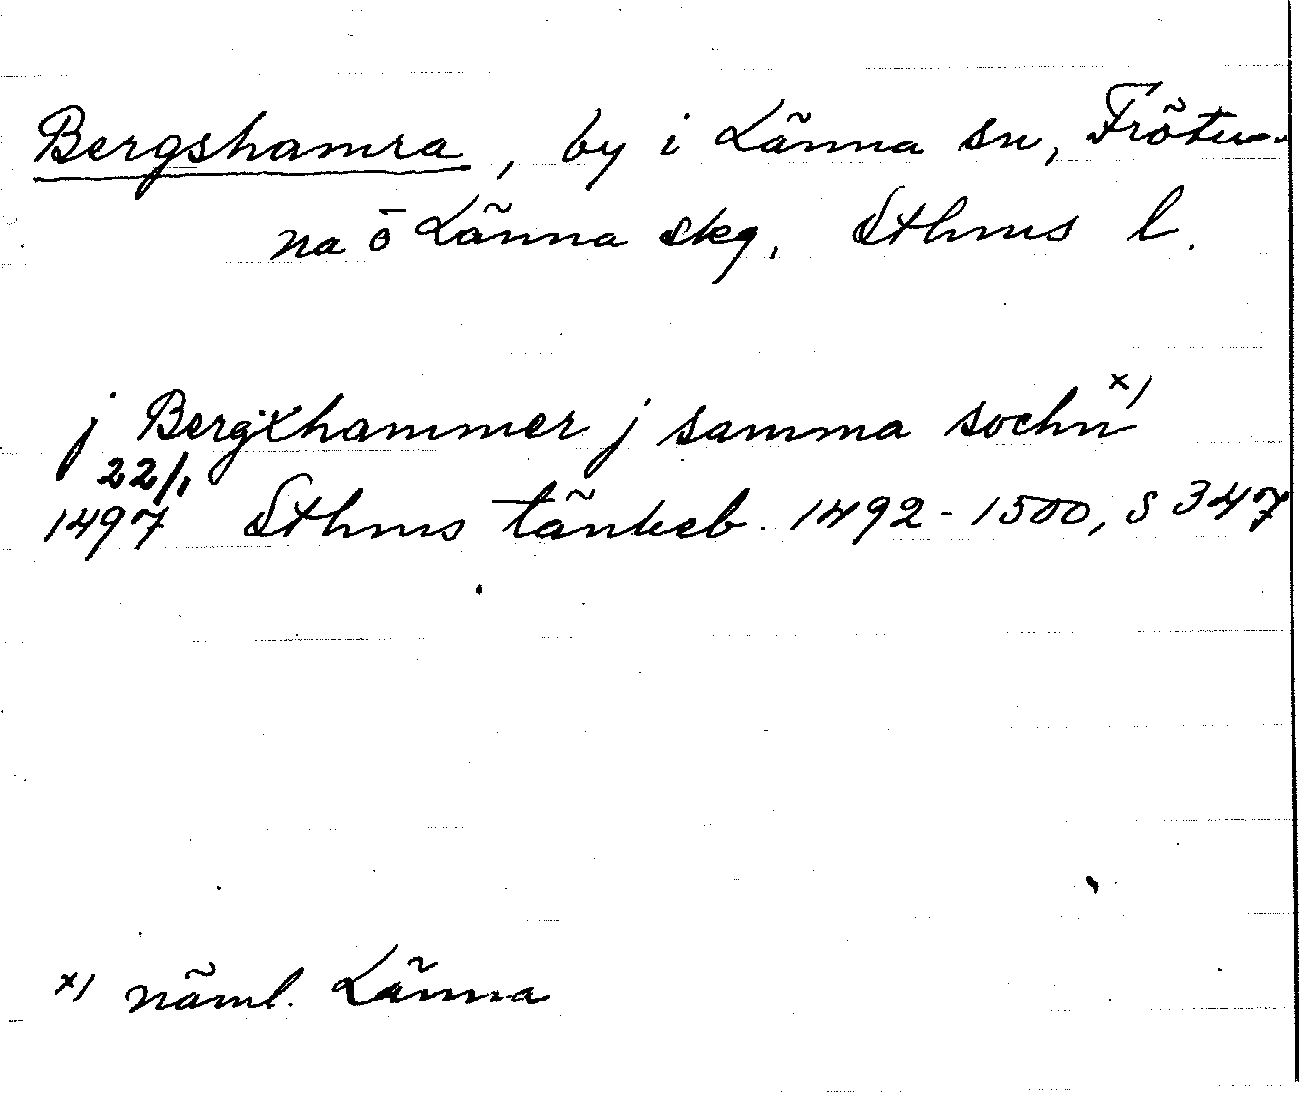 Bergshamra, by i Länna sn, Frötu-
na ō Länna skg, Sthms l.
j Bergxhammer j samma sochn x)
22/1
1497 Sthms tänkeb. 1492-1500, s 347
x) näml. Länna